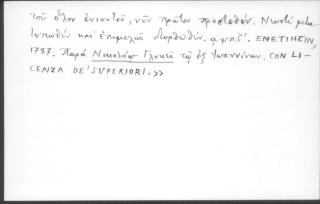 τοῦ ὅλου ἐνιαυτοῦ, νῦν πρῶτον προστεθέν. Νεωστὶ μετα
τυπωθὲν καὶ ἐπιμελῶς διορθωθέν. αψπζ´. ΕΝΕΤΙΗΣΙΝ,
1787. Παρὰ Νικολάῳ Γλυκεῖ τῷ ἐξ Ἰωαννίνων. CON LI-
CENZA DE' SUPERIORI.>>